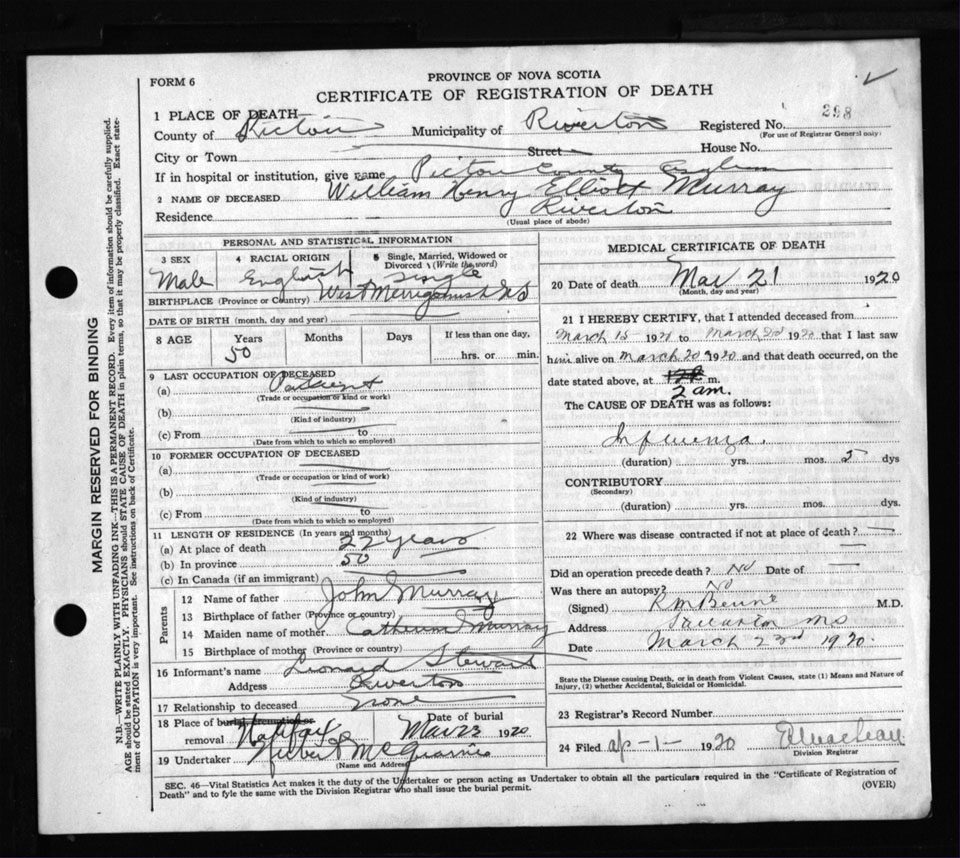 FORM 6
PROVINCE OF NOVA SCOTIA
CERTIFICATE OF REGISTRATION OF DEATH
MARGIN RESERVED FOR BINDING
N.B.—WRITE PLAINLY WITH UNFADING INK—THIS IS A PERMANENT RECORD. Every item of information should be carefully supplied.
AGE should be stated EXACTLY. PHYSICIANS should STATE CAUSE OF DEATH in plain terms, so that it may be properly classified. Exact state-
ment of OCCUPATION is very important. See instructions on back of Certificate.
1 PLACE OF DEATH
County of Pictou Municipality of Riverton Registered No. 298
(For use of Registrar General only)
City or Town Street House No.
If in hospital or institution, give name Pictou County Asylum
2 NAME OF DECEASED William Henry Elliott Murray
Residence Riverton
(Usual place of abode)
PERSONAL AND STATISTICAL INFORMATION
3 SEX 4 RACIAL ORIGIN 5 Single, Married, Widowed or Divorced (Write the word)
Male English Single
BIRTHPLACE (Province or Country) West Merigomish NS
DATE OF BIRTH (month, day and year)
8 AGE Years Months Days If less than one day,
50 hrs. or min.
9 LAST OCCUPATION OF DECEASED
(a) Patient
(Trade or occupation or kind or work)
(b)
(Kind of industry)
(c) From to
(Date from which to which so employed)
10 FORMER OCCUPATION OF DECEASED
(a)
(Trade or occupation or kind of work)
(b)
(Kind of industry)
(c) From to
(Date from which to which so employed)
11 LENGTH OF RESIDENCE (In years and months)
(a) At place of death 22 years
(b) In province 50
(c) In Canada (if an immigrant)
Parents
12 Name of father John Murray
13 Birthplace of father (Province or country)
14 Maiden name of mother Murray
15 Birthplace of mother (Province or country)
16 Informant's name Leonard Stewart
Address Riverton
17 Relationship to deceased none
18 Place of burial, cremation or removal Halifax Date of burial Mar 23 1920
19 Undertaker
(Name and Address)
MEDICAL CERTIFICATE OF DEATH
20 Date of death Mar 21 1920
(Month, day and year)
21 I HEREBY CERTIFY, that I attended deceased from
March 15 - 1920 to March 1920 that I last saw
him alive on March 20 1920 and that death occurred, on the
date stated above, at m.
2 am.
The CAUSE OF DEATH was as follows:
Influenza.
(duration) yrs. mos. 5 dys
CONTRIBUTORY
(Secondary)
(duration) yrs. mos. dys.
22 Where was disease contracted if not at place of death?
Did an operation precede death? No Date of
Was there an autopsy? No
(Signed) M.D.
Address
Date March 23rd 1920.
State the Disease causing Death, or in death from Violent Causes, state (1) Means and Nature of
Injury, (2) whether Accidental, Suicidal or Homicidal.
23 Registrar's Record Number
24 Filed Apr-1- 1920
Division Registrar
SEC. 46—Vital Statistics Act makes it the duty of the Undertaker or person acting as Undertaker to obtain all the particulars required in the "Certificate of Registration of
Death" and to fyle the same with the Division Registrar who shall issue the burial permit.
(OVER)